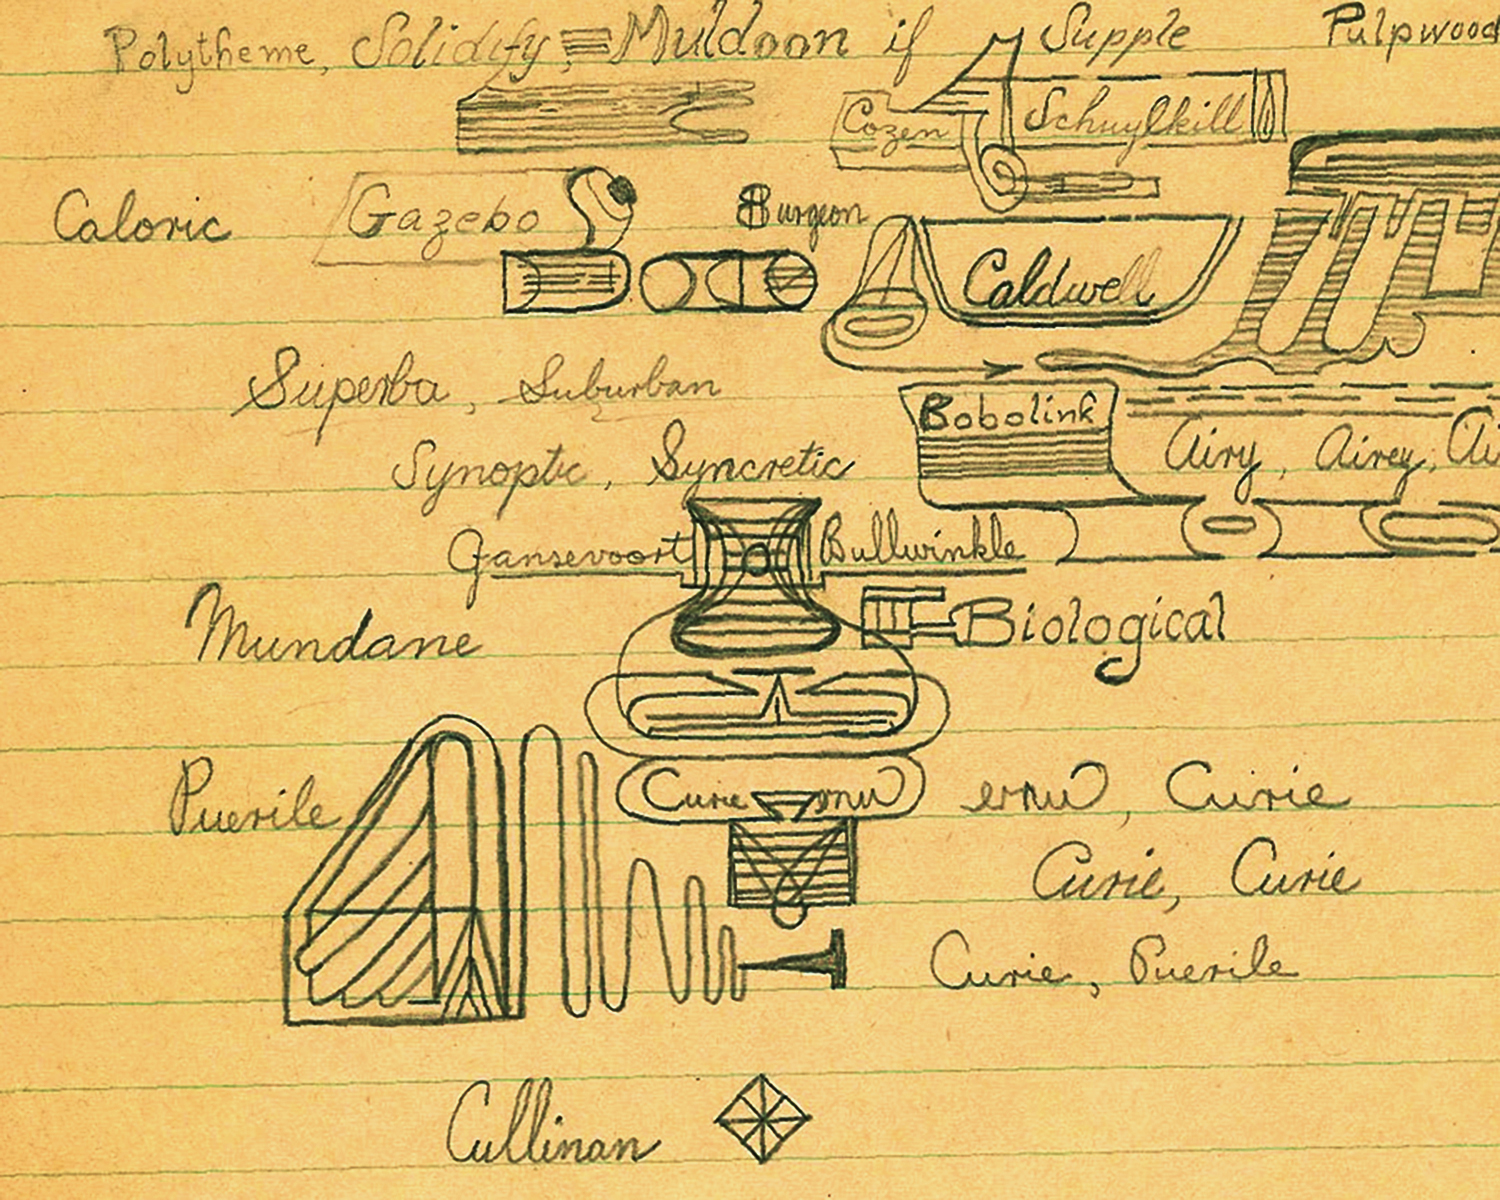 Polytheme, Solidify, Muldoon if Supple Pulpwood
Cozen Schuylkill
Caloric Gazebo Burgeon
Caldwell
Superba, Suburban
Bobolink
Airy, Airey, Ai
Synoptic, Syncretic
Gansevoort Bullwinkle
Mundane Biological
Puerile Curie , Curie
Curie, Curie
Curie, Puerile
Cullinan